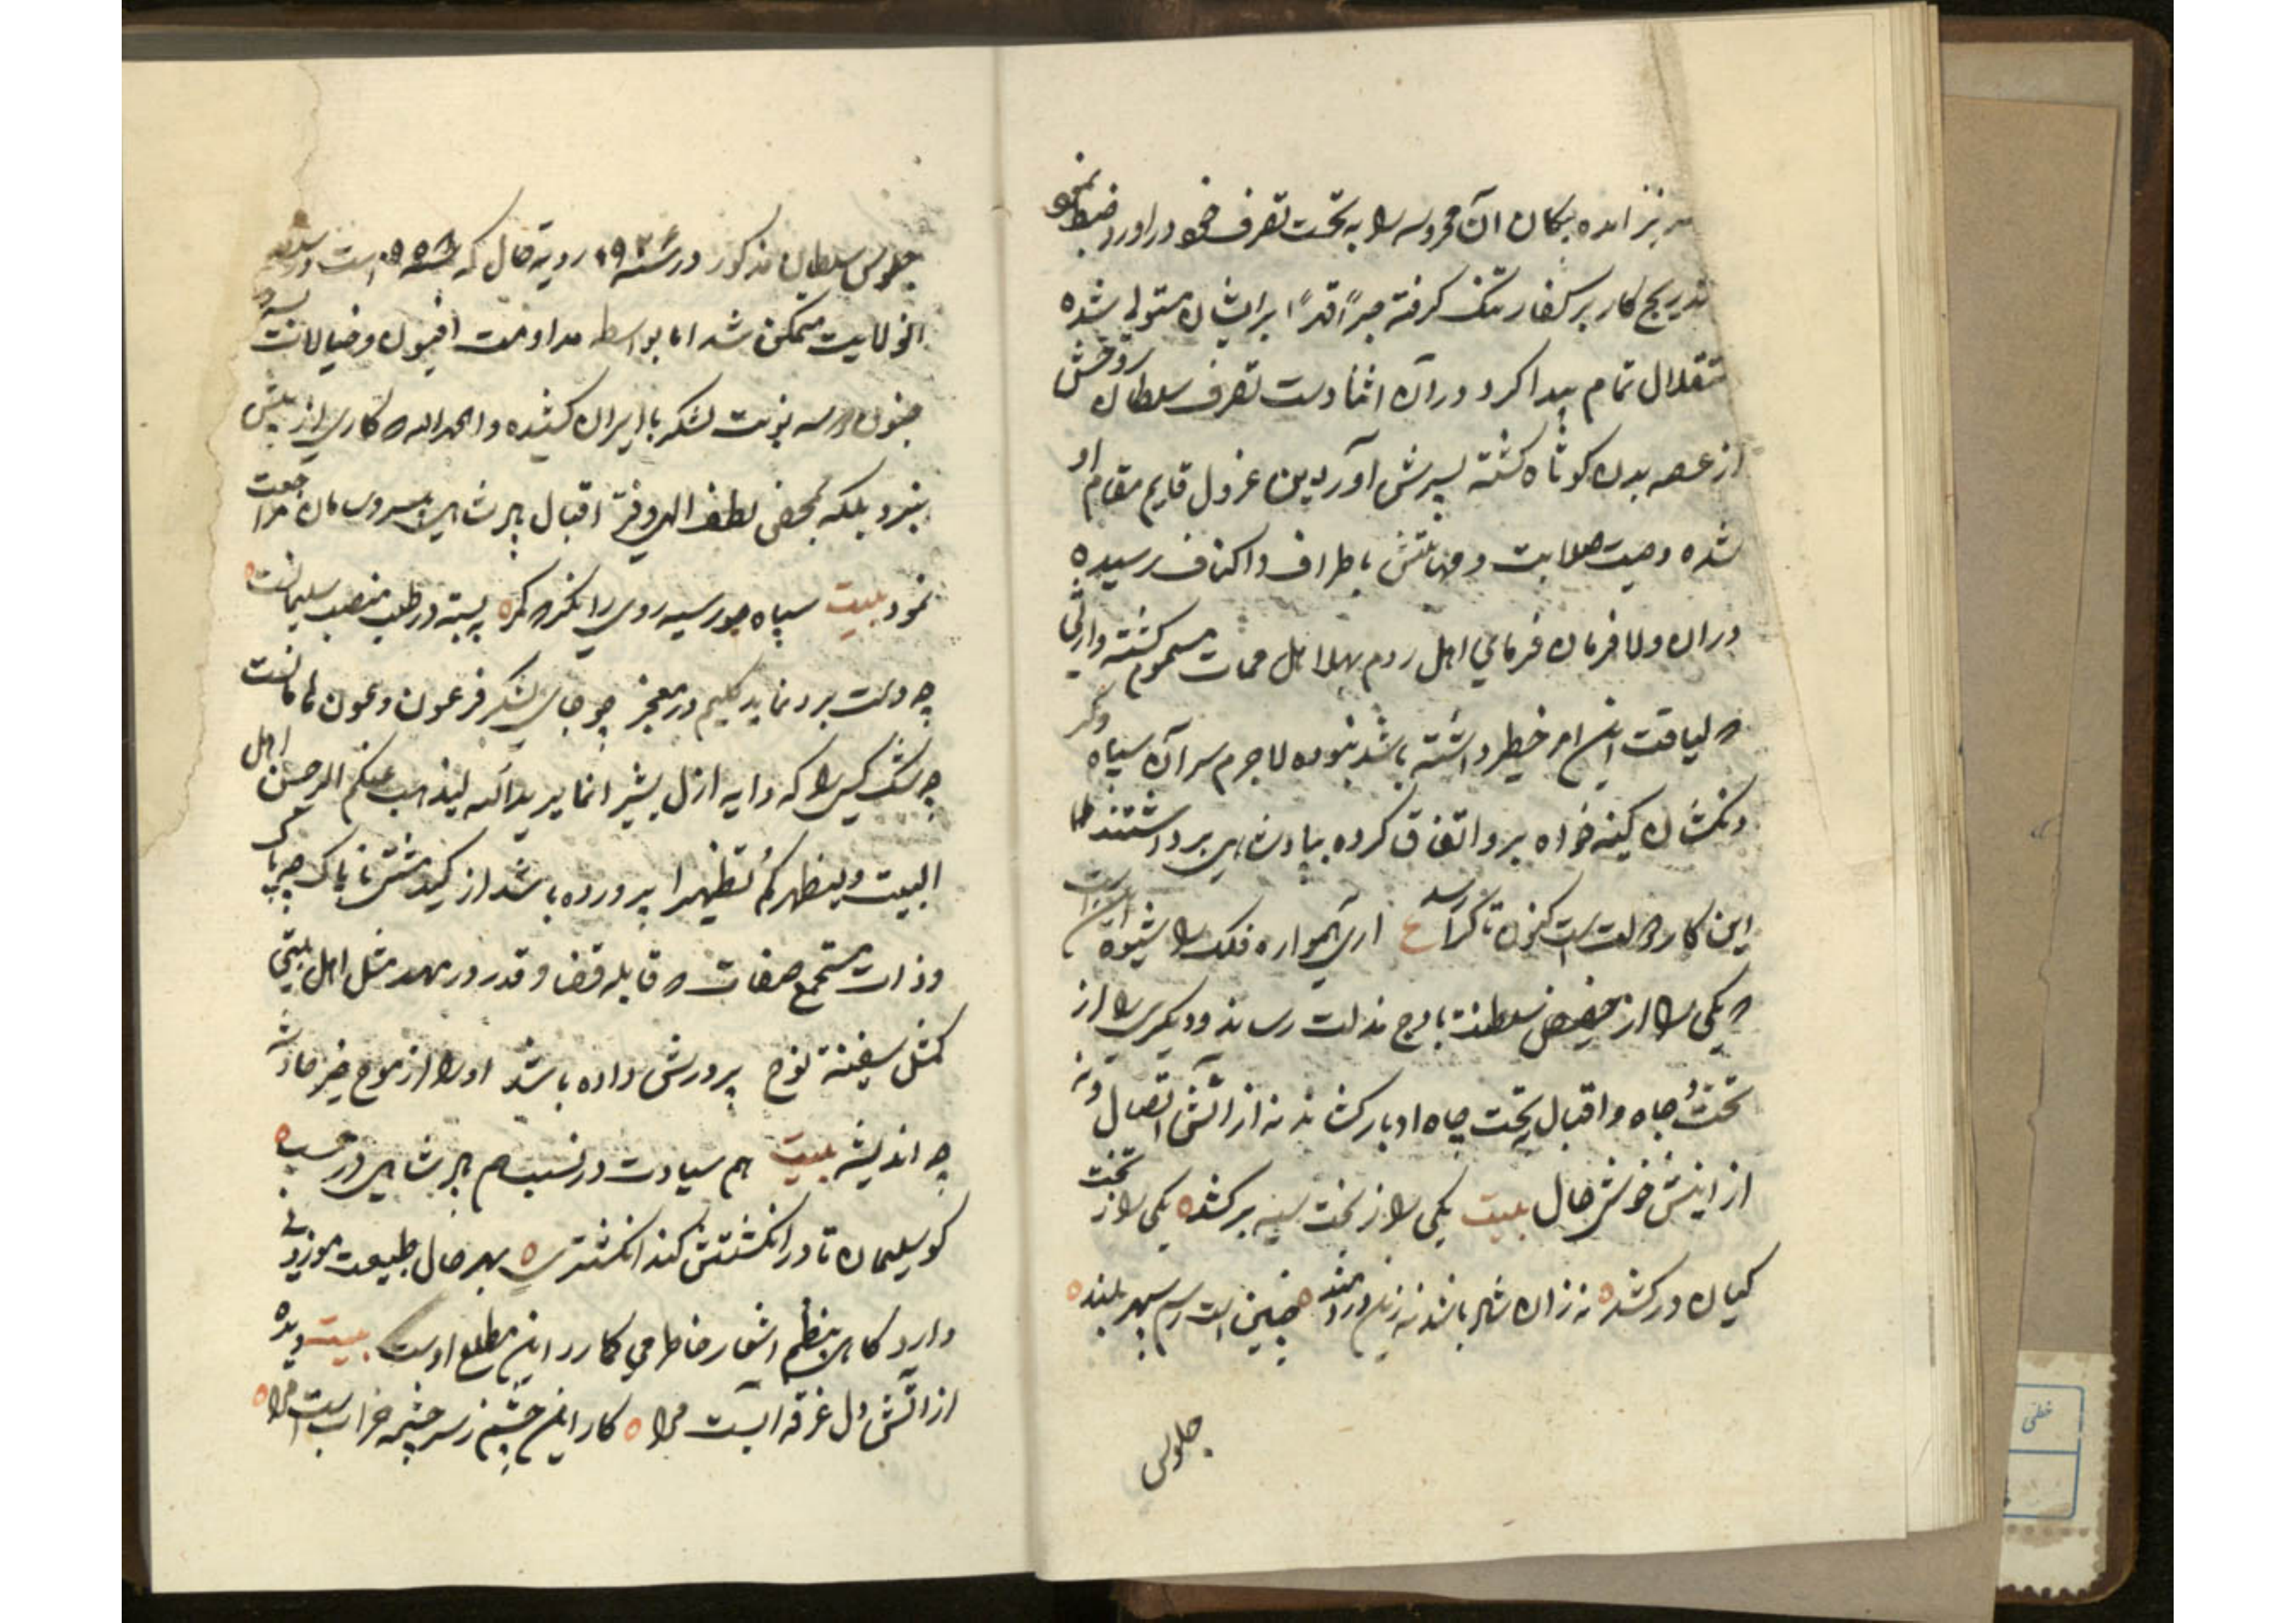 نیز امده بکان آن محروسه را به تحت تصرف خود در اورد ضبط نمود
تدریج کار بر کفار تنک کرفته جبراً قدراً بر ایشان متولی شده
ستقلال تمام پیدا کرد و در آن اثنا دست تصرف سلطان روحش
از عرصه بدن کوتاه کشته پسرش او قایم مقام او
شده وصیت صلابت و مهابتش باطراف و اکناف رسیده
در ان ولا فرمان فرمای اهل روم بهلاهل ممات مسموم کشته وارثی
که لیاقت این امر خطیر داشته باشد نبوده لاجرم سر آن سیاه وکر
و نکشان کینه خواه برو اتفاق کرده بپادشاهی برداشتند
این کار دولت است کنون تا کرا رسد ع اری همواره فلک را شیوه این است
که یکی را از حضیض سلطنت باوج مذلت رساند و دیکری را از
تخت و جاه و اقبال بتحت چاه ادبار کشاند نه از آتش اتصال و نه
از اینش خوش حال بیت یکی را ز تخت سیه برکشد یکی را ز تخت
کیان درکشد نه زان شاد باشد نه زین دردمند چنین است رسم سپهر بلند
جلوس
جلوس سلطان مذکور در سنه ۹۲ رویه حال که سنه ۹۵۸ است در سلطنت
الولایت متمکن شد اما بواسطه مداومت افیون و خیالات
جنون دو سه نوبت لشکر با ایران کشیده و الحمدالله که کاری از پیش
نبرد بلکه بمحض لطف الهی و فر اقبال پادشاهی بی سر و سامان مراجعت
نمود بیت سپاه جور سیه روی را نکر که کمر ببسته در طلب منصب سلیمانست
چو دست برد نماید کلیم در معجز چو جای لشکر فرعون و عون هامانست
چه شک کسی را که دایه ازل بشیر انما یرید الله لیذهب عنکم الرجس اهل
البیت ویطهرکم تطهیرا پرورده باشد از کید مشتی ناپاک چه باک
وذات مستجمع صفات که قابله قضا و قدر در مهد مثل اهل بیتی
کمثل سفینة نوح پرورش داده باشد او را از موج خیز حادثه
چه اندیشه بیت هم سیادت در نسب هم پادشاهی در حسب
کو سلیمان تا در انکشتش کند انکشتری بهر حال طبیعت موزونی
دارد کاهی بنظم اشعار خاطر می کمارد این مطلع اوست بیت دیده
از آتش دل غرقه ابست مرا کار این چشم ز سرچشمه خرابست مرا
خطی